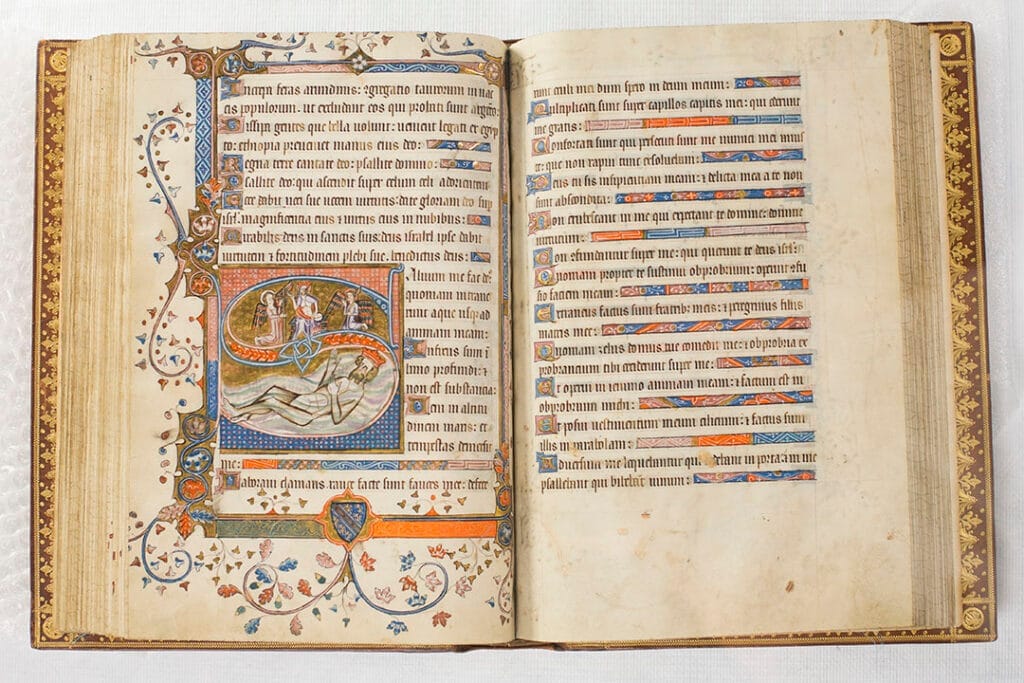 Increpa feras arundinis: ꝯgregatio taurorum in vac
cis populorum: ut excludant eos qui probati sunt argēto:
Dissipa gentes que bella volunt: venient legati ex egyp
to: ethiopia preveniet manus eius deo:
Regna terre cantate deo: psallite domino:
Psallite deo: qui ascendit super celum celi ad orientem
Ecce dabit voci sue vocem virtutis: date gloriam deo sup
isrl. magnificentia eius ⁊ virtus eius in nubibus:
Mirabilis deus in sanctis suis: deus israel ipse dabit
virtutem ⁊ fortitudinem plebi sue. benedictus deus:
Salvum me fac deꝰ
quoniam intrave
runt aque usquad
animam meam:
Infixus sum ī
limo profundi: ⁊
non est substancia:
Veni in altitu
dinem maris: et
tempestas demersit
me:
Laboravi clamans. rauce facte sunt fauces mee: defece
runt oculi mei dum spero in deum meum:
Multiplicati sunt super capillos capitis mei: qui oderunt
me gratis:
Confortati sunt qui persecuti sunt me inimici mei iniuste
que non rapui tunc exsolvebam:
Deus tu scis insipientiam meam: ⁊ delicta mea a te non
sunt abscondita:
Non erubescant in me qui expectant te domine: domine
virtutum:
Non confundantur super me: qui querunt te deus isrl:
Quoniam propter te sustinui obprobrium: operuit ꝯfu
sio faciem meam:
Extraneus factus sum fratribꝰ meis: ⁊ peregrinus filiis
matris mee:
Quoniam zelus domus tue comedit me: ⁊ obprobria ex
probrancium tibi ceciderunt super me:
Et operui in ieiunio animam meam: ⁊ factum est in
obprobrium michi:
Et posui vestimentum meum cilicium: ⁊ factus sum
illis in parabolam:
Adversum me loquebantur qui sedebant in porta: ⁊ in me
psallebant qui bibebant vinum: